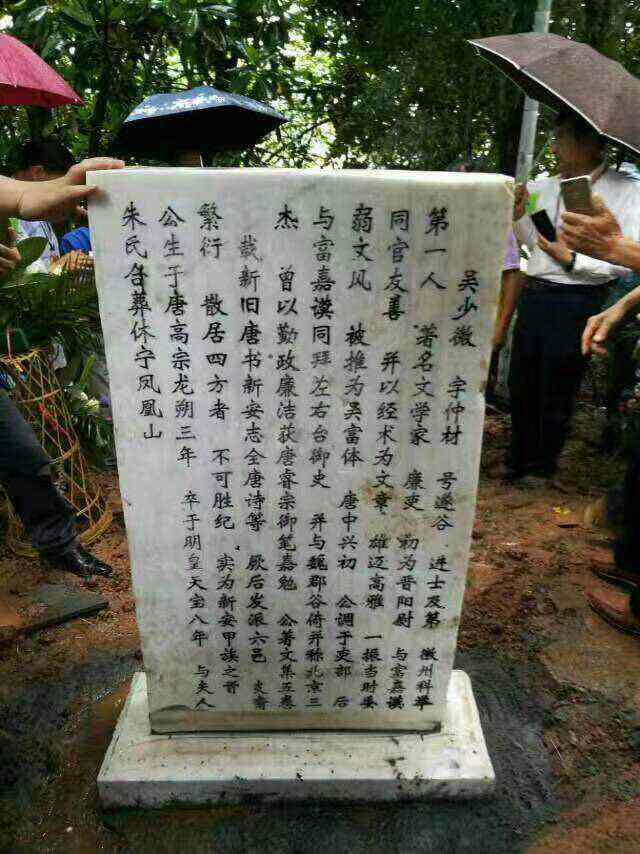 吴少微 字仲材 号遂谷 进士及第 徽州科举
第一人 著名文学家 廉吏 初为晋阳尉 与富嘉谟
同官友善 并以经术为文章 雄迈高雅 一振当时萎
弱文风 被推为吴富体 唐中兴初 公调于吏部 后
与富嘉谟同拜左右台御史 并与魏郡谷倚并称北京三
杰 曾以勤政廉洁获唐睿宗御笔嘉勉 公著文集五卷
载新旧唐书新安志全唐诗等 厥后发派六邑 支裔
繁衍 散居四方者 不可胜纪 实为新安甲族之冠
公生于唐高宗龙朔三年 卒于明皇天宝八年 与夫人
朱氏合葬休宁凤凰山